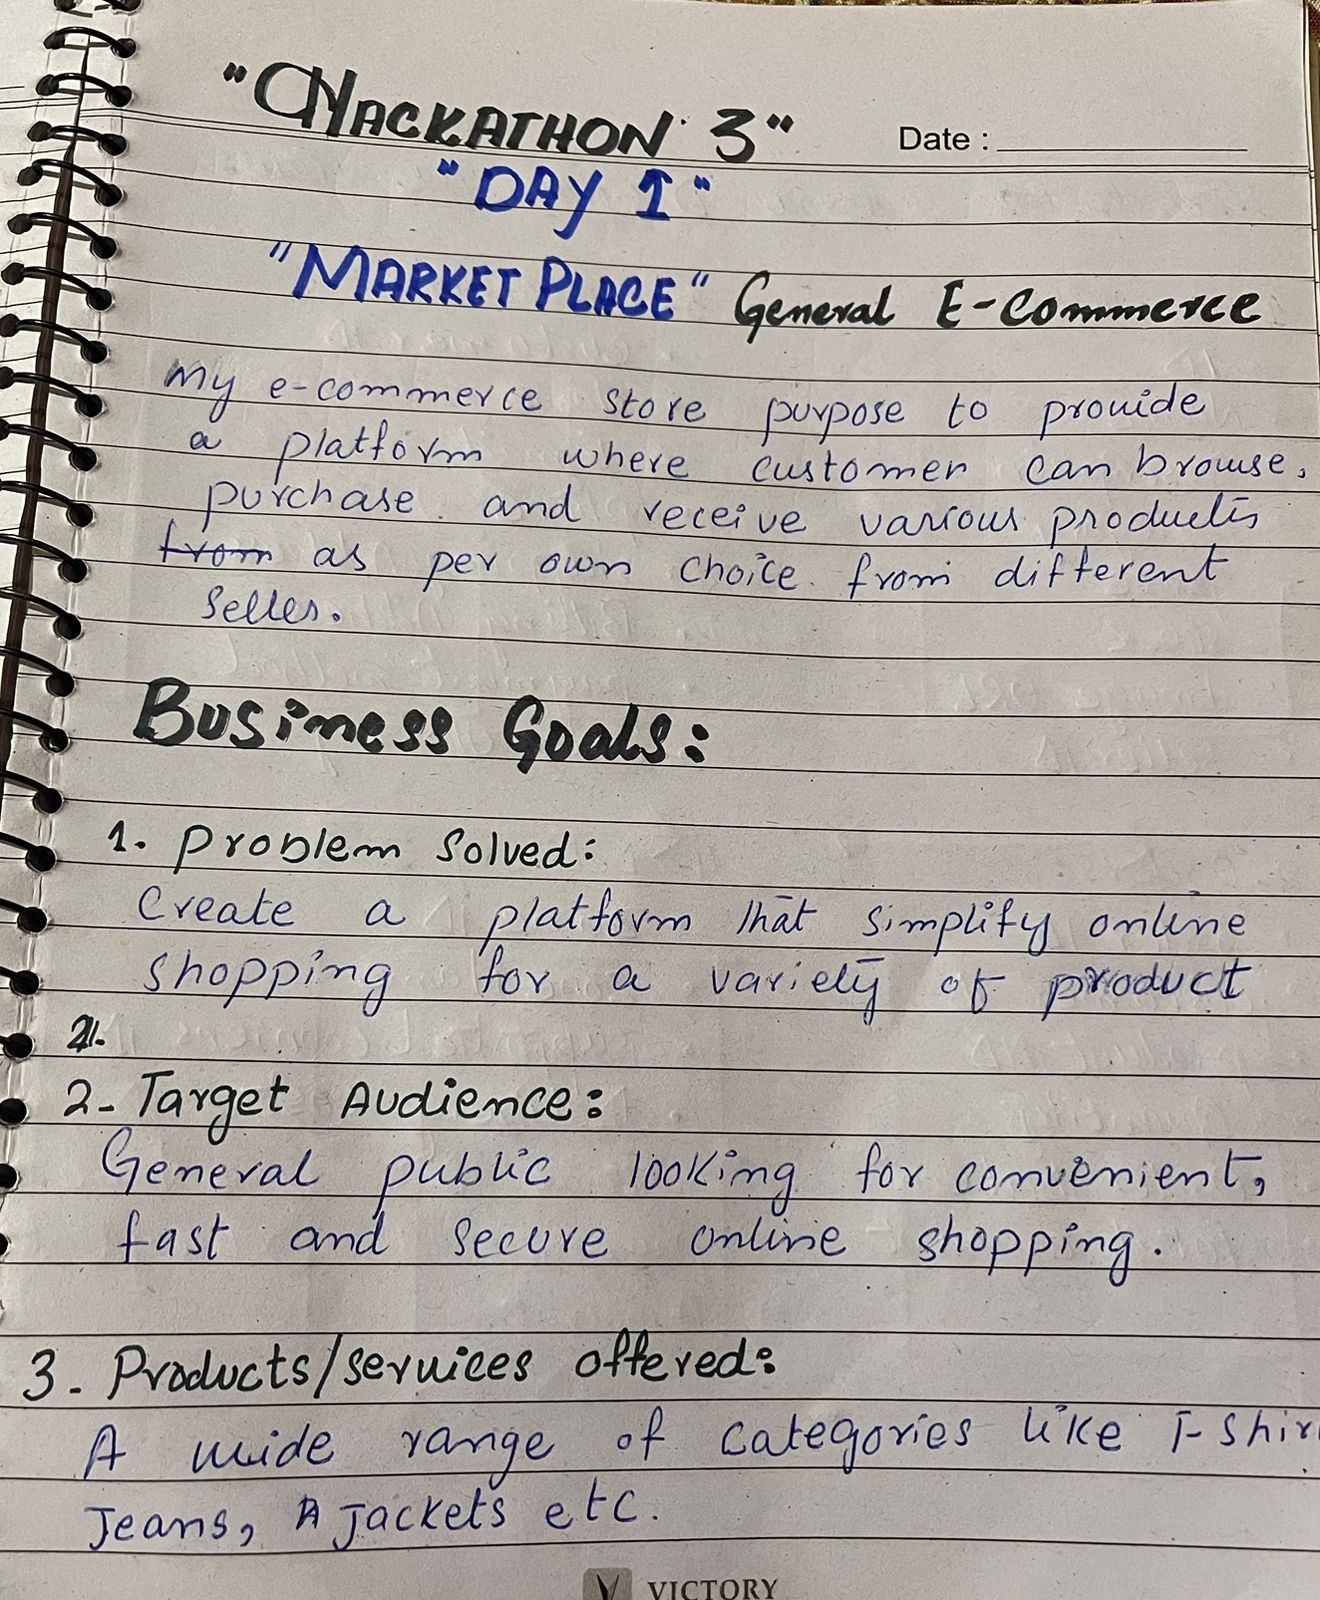 "HACKATHON 3"
Date :
"DAY 1"
"MARKET PLACE" General E-Commerce
My e-commerce store purpose to provide
a platform where customer can browse,
purchase and receive various products
from as per own choice from different
Seller.
Business Goals:
1. Problem Solved:
Create a platform that simplify online
shopping for a variety of product
2.
2- Target Audience:
General public looking for convenient,
fast and secure online shopping.
3. Products/services offered:
A wide range of categories like T-Shir
Jeans, Jackets etc.
VICTORY